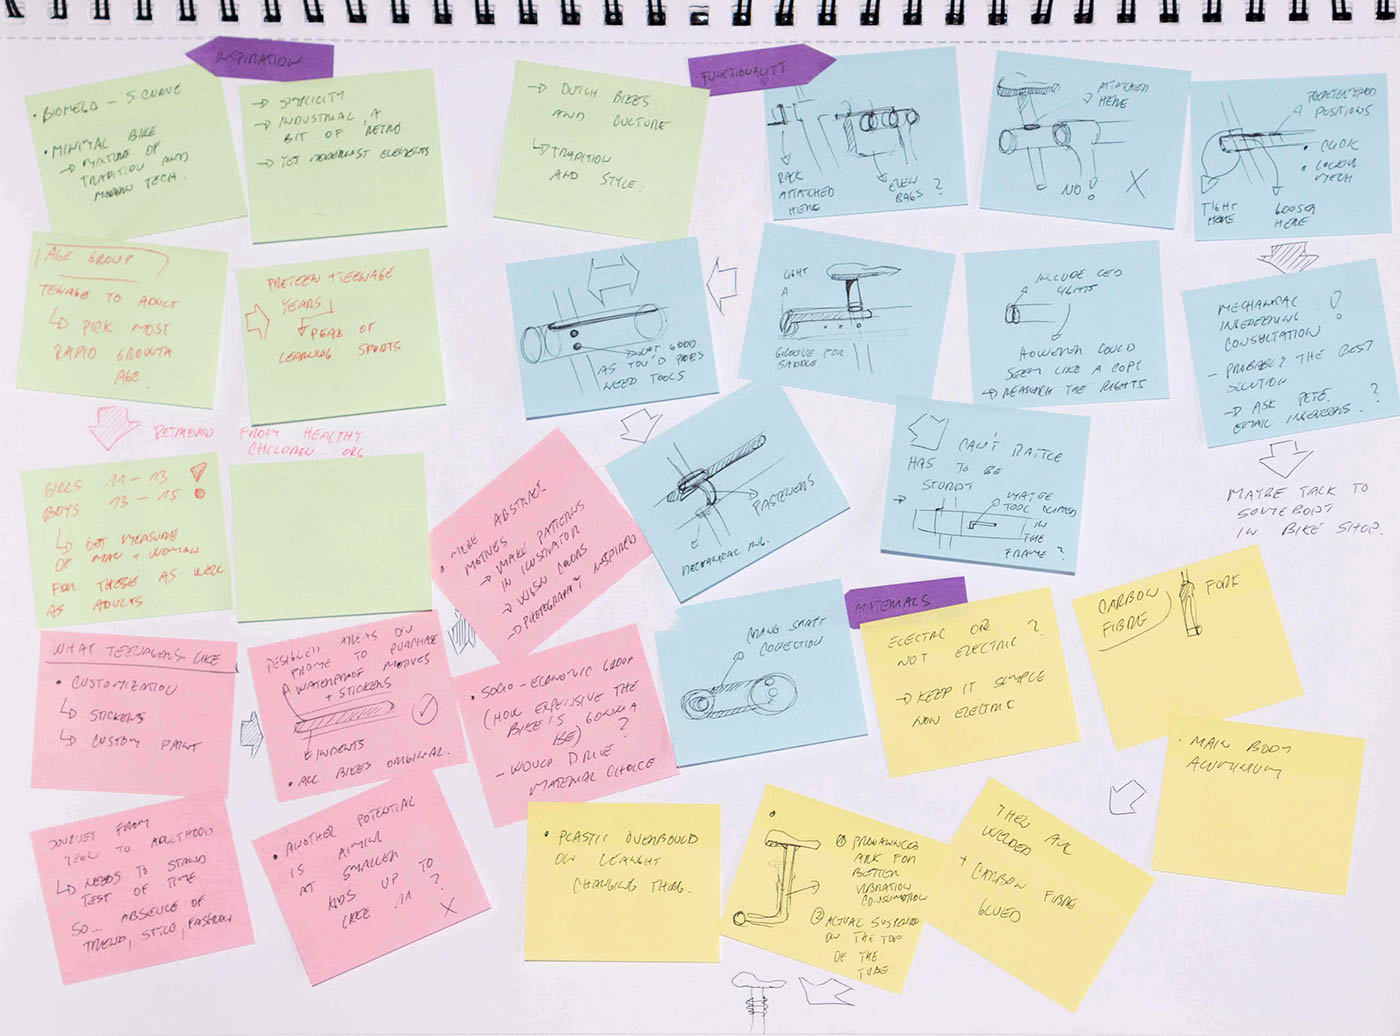 INSPIRATION
• BIOMEGA - S CURVE
• MINIMAL BIKE
→ MIXTURE OF
TRADITION AND
MODERN TECH.
→ SIMPLICITY
→ INDUSTRIAL, A
BIT OF RETRO
→ YET MODERNIST ELEMENTS
→ DUTCH BIKES
AND CULTURE
↳ TRADITION
AND STYLE.
AGE GROUP
TENAGE TO ADULT
↳ PICK MOST
RAPID GROWTH
AGE.
PRETEEN + TEENAGE
YEARS
PEAK OF
LEARNING SPORTS
RETRIEVED FROM HEALTHY
CHILDREN. ORG
GIRLS 11 - 13
BOYS 13 - 15
↳ GET MEASURE
OF MAN + WOMAN
FOR THESE AS WELL
AS ADULTS
WHAT TEENAGERS LIKE
• CUSTOMIZATION
↳ STICKERS
↳ CUSTOM PAINT
AREAS ON
FRAME TO PURCHASE
A WATERPROOF MOTIVES
+ STICKERS
• ALL BIKES ORIGINAL.
• MORE ABSTRACT
MOTIVES
→ MAKE PATTERNS
IN ILLUSTRATOR
→ COLORS
→ PHOTOGRAPHY INSPIRED
• SOCIO-ECONOMIC GROUP
(HOW EXPENSIVE THE
BIKE IS GONNA
BE) ?
- WOULD DRIVE
MATERIAL CHOICE
JOURNEY FROM
TEEN TO ADULTHOOD
↳ NEEDS TO STAND
TEST OF TIME
SO... ABSENCE OF
TREND, STYLE, FASHION
• ANOTHER POTENTIAL
IS AIMING
AT SMALLER
KIDS UP TO
11 ?
X
FUNCTIONALITY
RACK
ATTACHED
HERE
EVEN
BAGS ?
ATTACHED
HERE
NO !
X
POSITIONS
• CLICK
• MECH
TIGHT
HERE
LOOSER
HERE
→ NOT GOOD
AS YOU'D PROBS
NEED TOOLS
LIGHT
A
GROOVE FOR
SADDLE
INCLUDE LED
LIGHTS
HOWEVER COULD
SEEM LIKE A COPY
→ RESEARCH THE RIGHTS
MECHANICAL !
INGENEERING
CONSULTATION
- PROBABLY THE BEST
SOLUTION
→ ASK PETE ?
EMAIL INGENEERS.
MAYBE TALK TO
SOMEBODY
IN BIKE SHOP.
FASTENERS
MECHANICAL ING.
CAN'T RATTLE
HAS TO BE
STURDY
MAYBE
TOOL
IN
THE
FRAME ?
SHAFT
MATERIALS
ELECTRIC OR
NOT ELECTRIC ?
→ KEEP IT SIMPLE
NON ELECTRIC
CARBON
FIBRE
FORK
• MAIN BODY
ALUMINIUM
WELDED
+ CARBON FIBRE
GLUED
• PLASTIC OVERMOULD
ON LENGHT
CHANGING THING.
① PRONOUNCED
ARK FOR
BETTER
VIBRATION
CONSUMTION
② ACTUAL
ON THE TOP
OF THE
TUBE